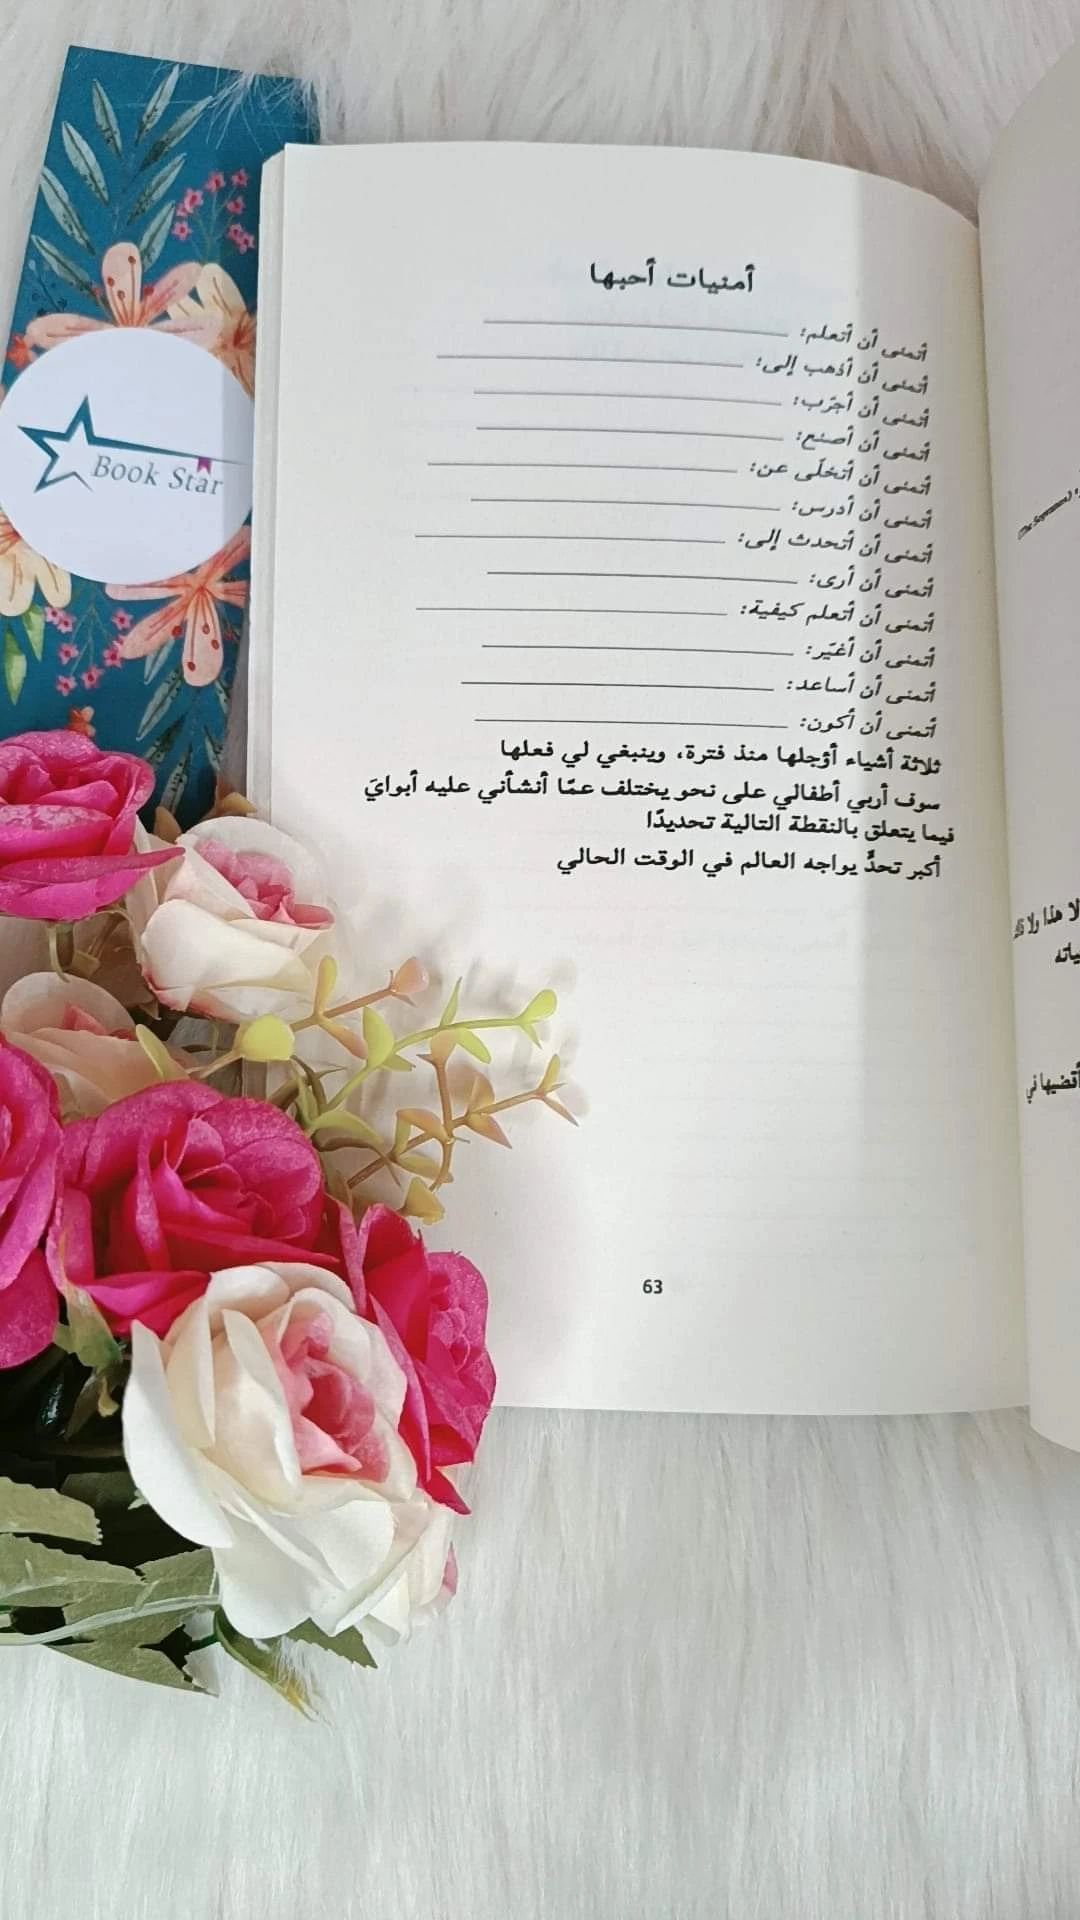 أمنيات أحبها
أتمنى أن أتعلم:
أتمنى أن أذهب إلى:
أتمنى أن أجرّب:
أتمنى أن أصنع:
أتمنى أن أتخلّى عن:
أتمنى أن أدرس:
أتمنى أن أتحدث إلى:
أتمنى أن أرى:
أتمنى أن أتعلم كيفية:
أتمنى أن أغيّر:
أتمنى أن أساعد:
أتمنى أن أكون:
ثلاثة أشياء أؤجلها منذ فترة، وينبغي لي فعلها
سوف أربي أطفالي على نحو يختلف عمّا أنشأني عليه أبوايَ
فيما يتعلق بالنقطة التالية تحديدًا
أكبر تحدٍّ يواجه العالم في الوقت الحالي
63
Book Star
لا هذا ولا
أقضيها في